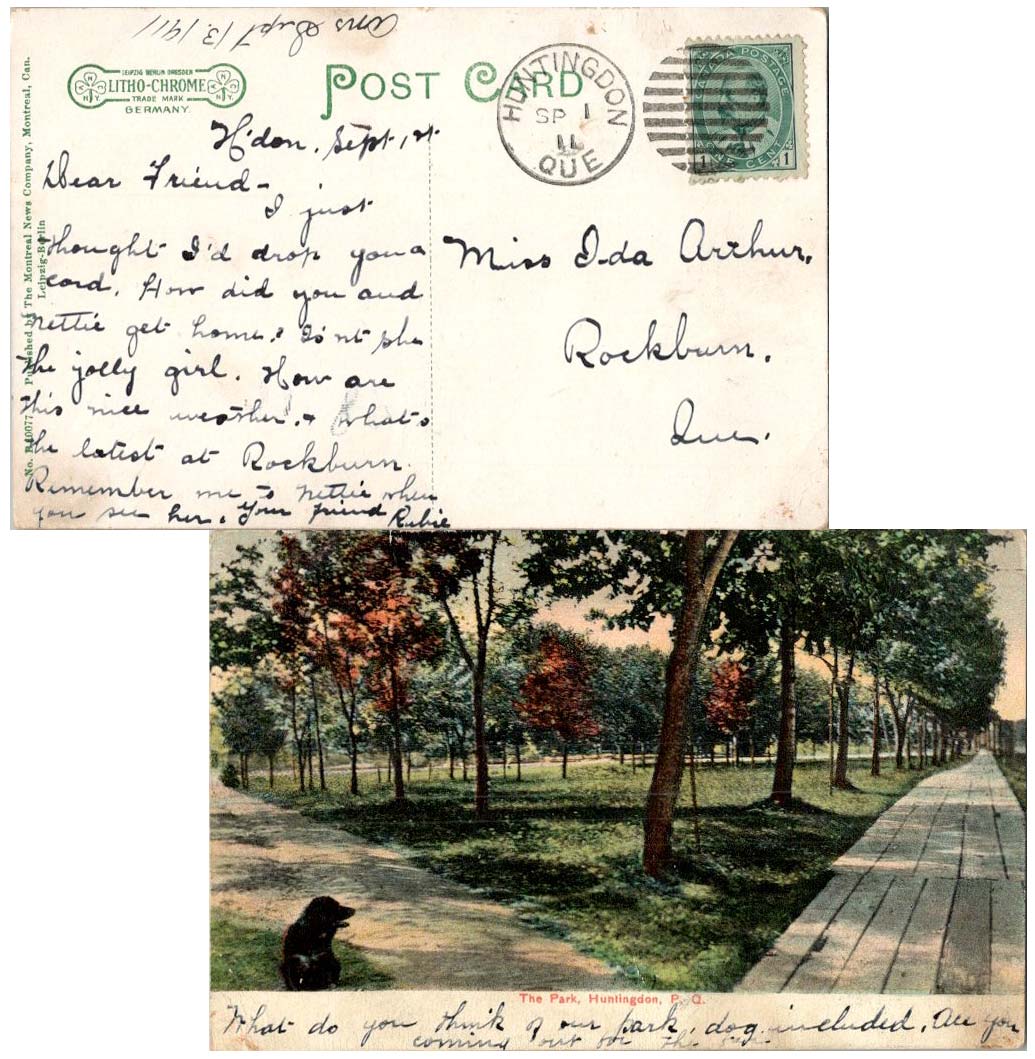 Ans Sept 13, 1911
LEIPZIG BERLIN DRESDEN
LITHO-CHROME
TRADE MARK
GERMANY.
N.Y.
N.Y.
POST CARD
HUNTINGDON
SP 1
11
QUE
CANADA POSTAGE
ONE CENT
1 1
No. B40077 Published by The Montreal News Company, Montreal, Can.
Leipzig-Berlin
H'don, Sept, 1st
Dear Friend-
I just
thought I'd drop you a
card. How did you and
Nettie get home? Is'nt she
the jolly girl. How are
this nice weather. & What's
the latest at Rockburn.
Remember me to Nettie when
you see her. Your friend Rubie
Miss Ida Arthur,
Rockburn,
Que.
The Park, Huntingdon, P. Q.
What do you think of our park, dog included, Are you
coming out for the